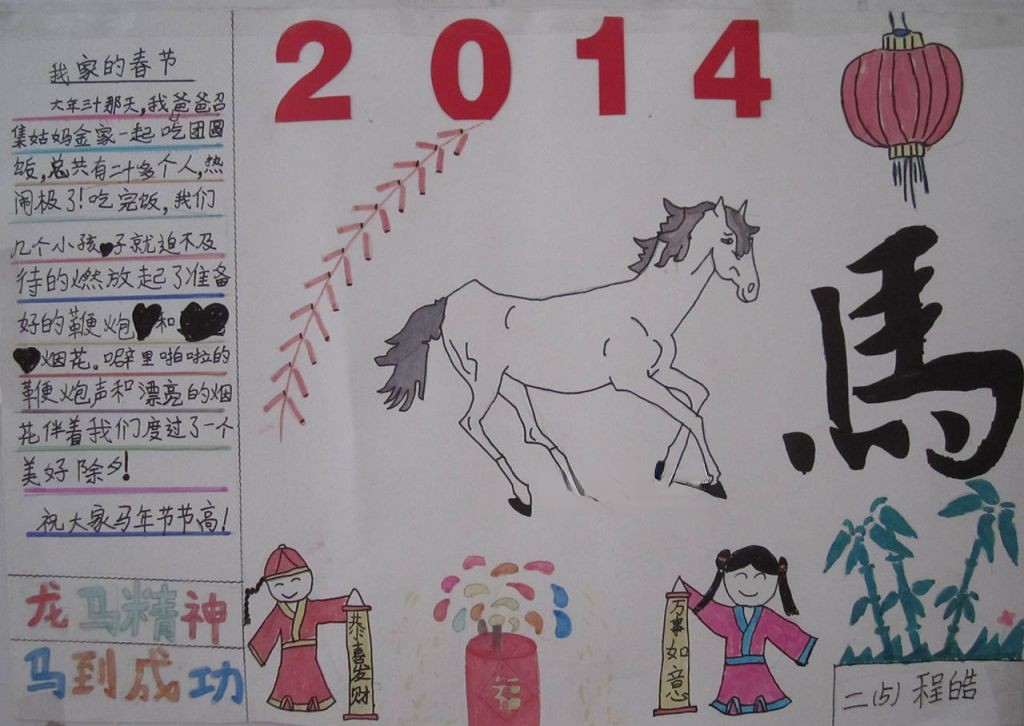 2014
我家的春节
大年三十那天,我爸爸召
集姑妈全家一起吃团圆
饭,总共有二十多个人,热
闹极了!吃完饭,我们
几个小孩子就迫不及
待的燃放起了准备
好的鞭炮和
烟花。噼里啪啦的
鞭炮声和漂亮的烟
花伴着我们度过了一个
美好除夕!
祝大家马年节节高!
龙马精神
马到成功
馬
恭喜发财
福
万事如意
二(5) 程皓